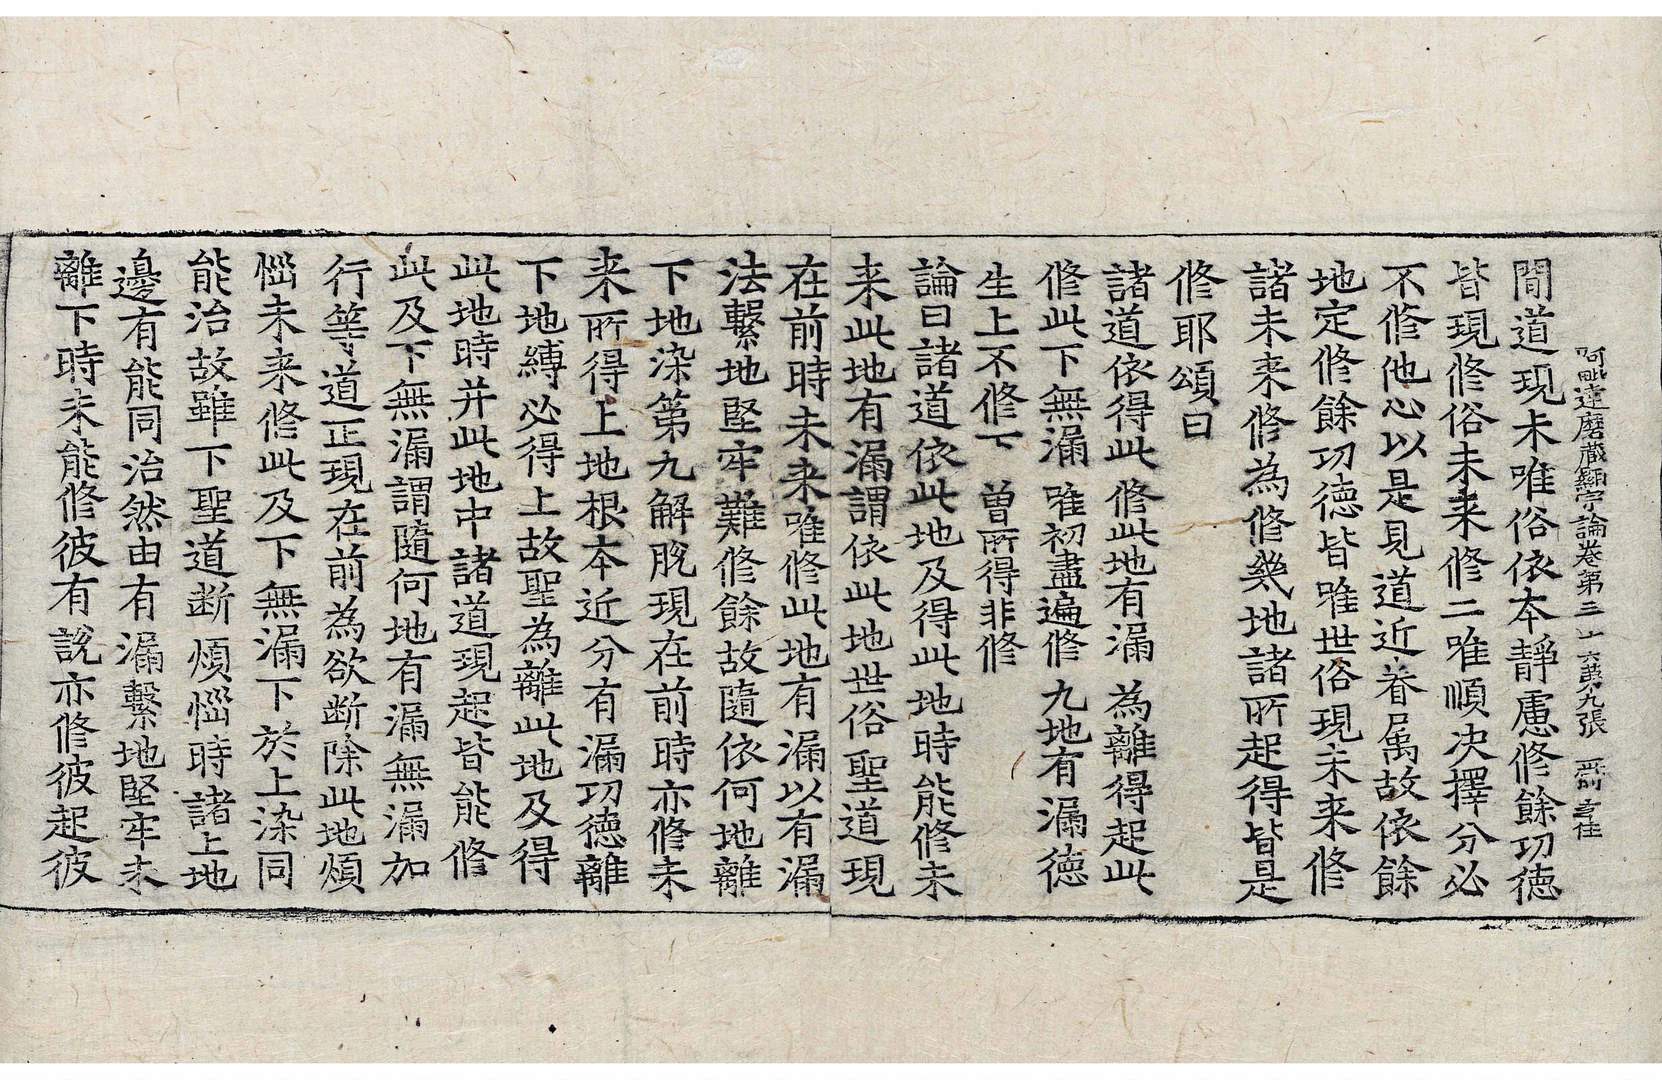 阿毗達磨藏顯宗論卷第三十六 第九張
間道現未唯俗依本靜慮修餘功德
皆現修俗未来修二唯順决擇分必
不修他心以是見道近眷属故依餘
地定修餘功德皆唯世俗現未来修
諸未来修為修幾地諸所起得皆是
修耶頌曰
諸道依得此 修此地有漏 為離得起此
修此下無漏 唯初盡遍修 九地有漏德
生上不修下 曽所得非修
論曰諸道依此地及得此地時能修未
来此地有漏謂依此地世俗聖道現
在前時未来唯修此地有漏以有漏
法繫地堅牢難修餘故隨依何地離
下地染第九解脫現在前時亦修未
来所得上地根本近分有漏功德離
下地縛必得上故聖為離此地及得
此地時并此地中諸道現起皆能修
此及下無漏謂隨何地有漏無漏加
行等道正現在前為欲断除此地煩
惱未来修此及下無漏下於上染同
能治故雖下聖道断煩惱時諸上地
邊有能同治然由有漏繫地堅牢未
離下時未能修彼有說亦修彼起彼